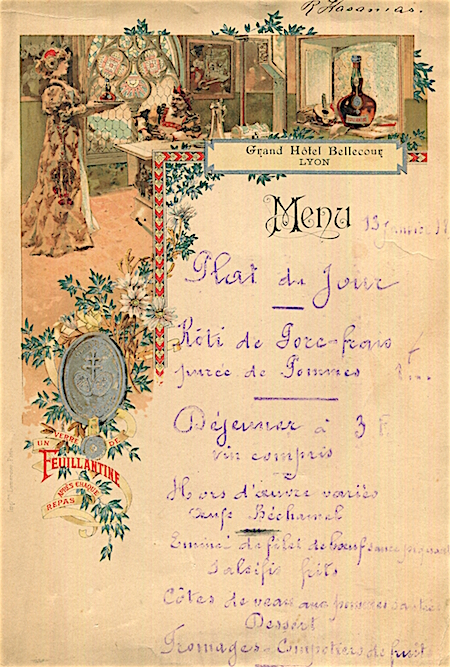 R Hasamas.
Grand Hôtel Bellecour
LYON
Menu
13
Plat du Jour
Rôti de Porc frais
purée de Pommes 1F..
Déjeuner à 3 F
vin compris
Hors d'œuvre variés
Œufs Béchamel
Emincé de filet de bœuf sauce piquant
Salsifis frits
Côtes de veau aux pommes sautées
Dessert
Fromages - Compotiers de fruits
UN VERRE DE
FEUILLANTINE
APRÈS CHAQUE
REPAS